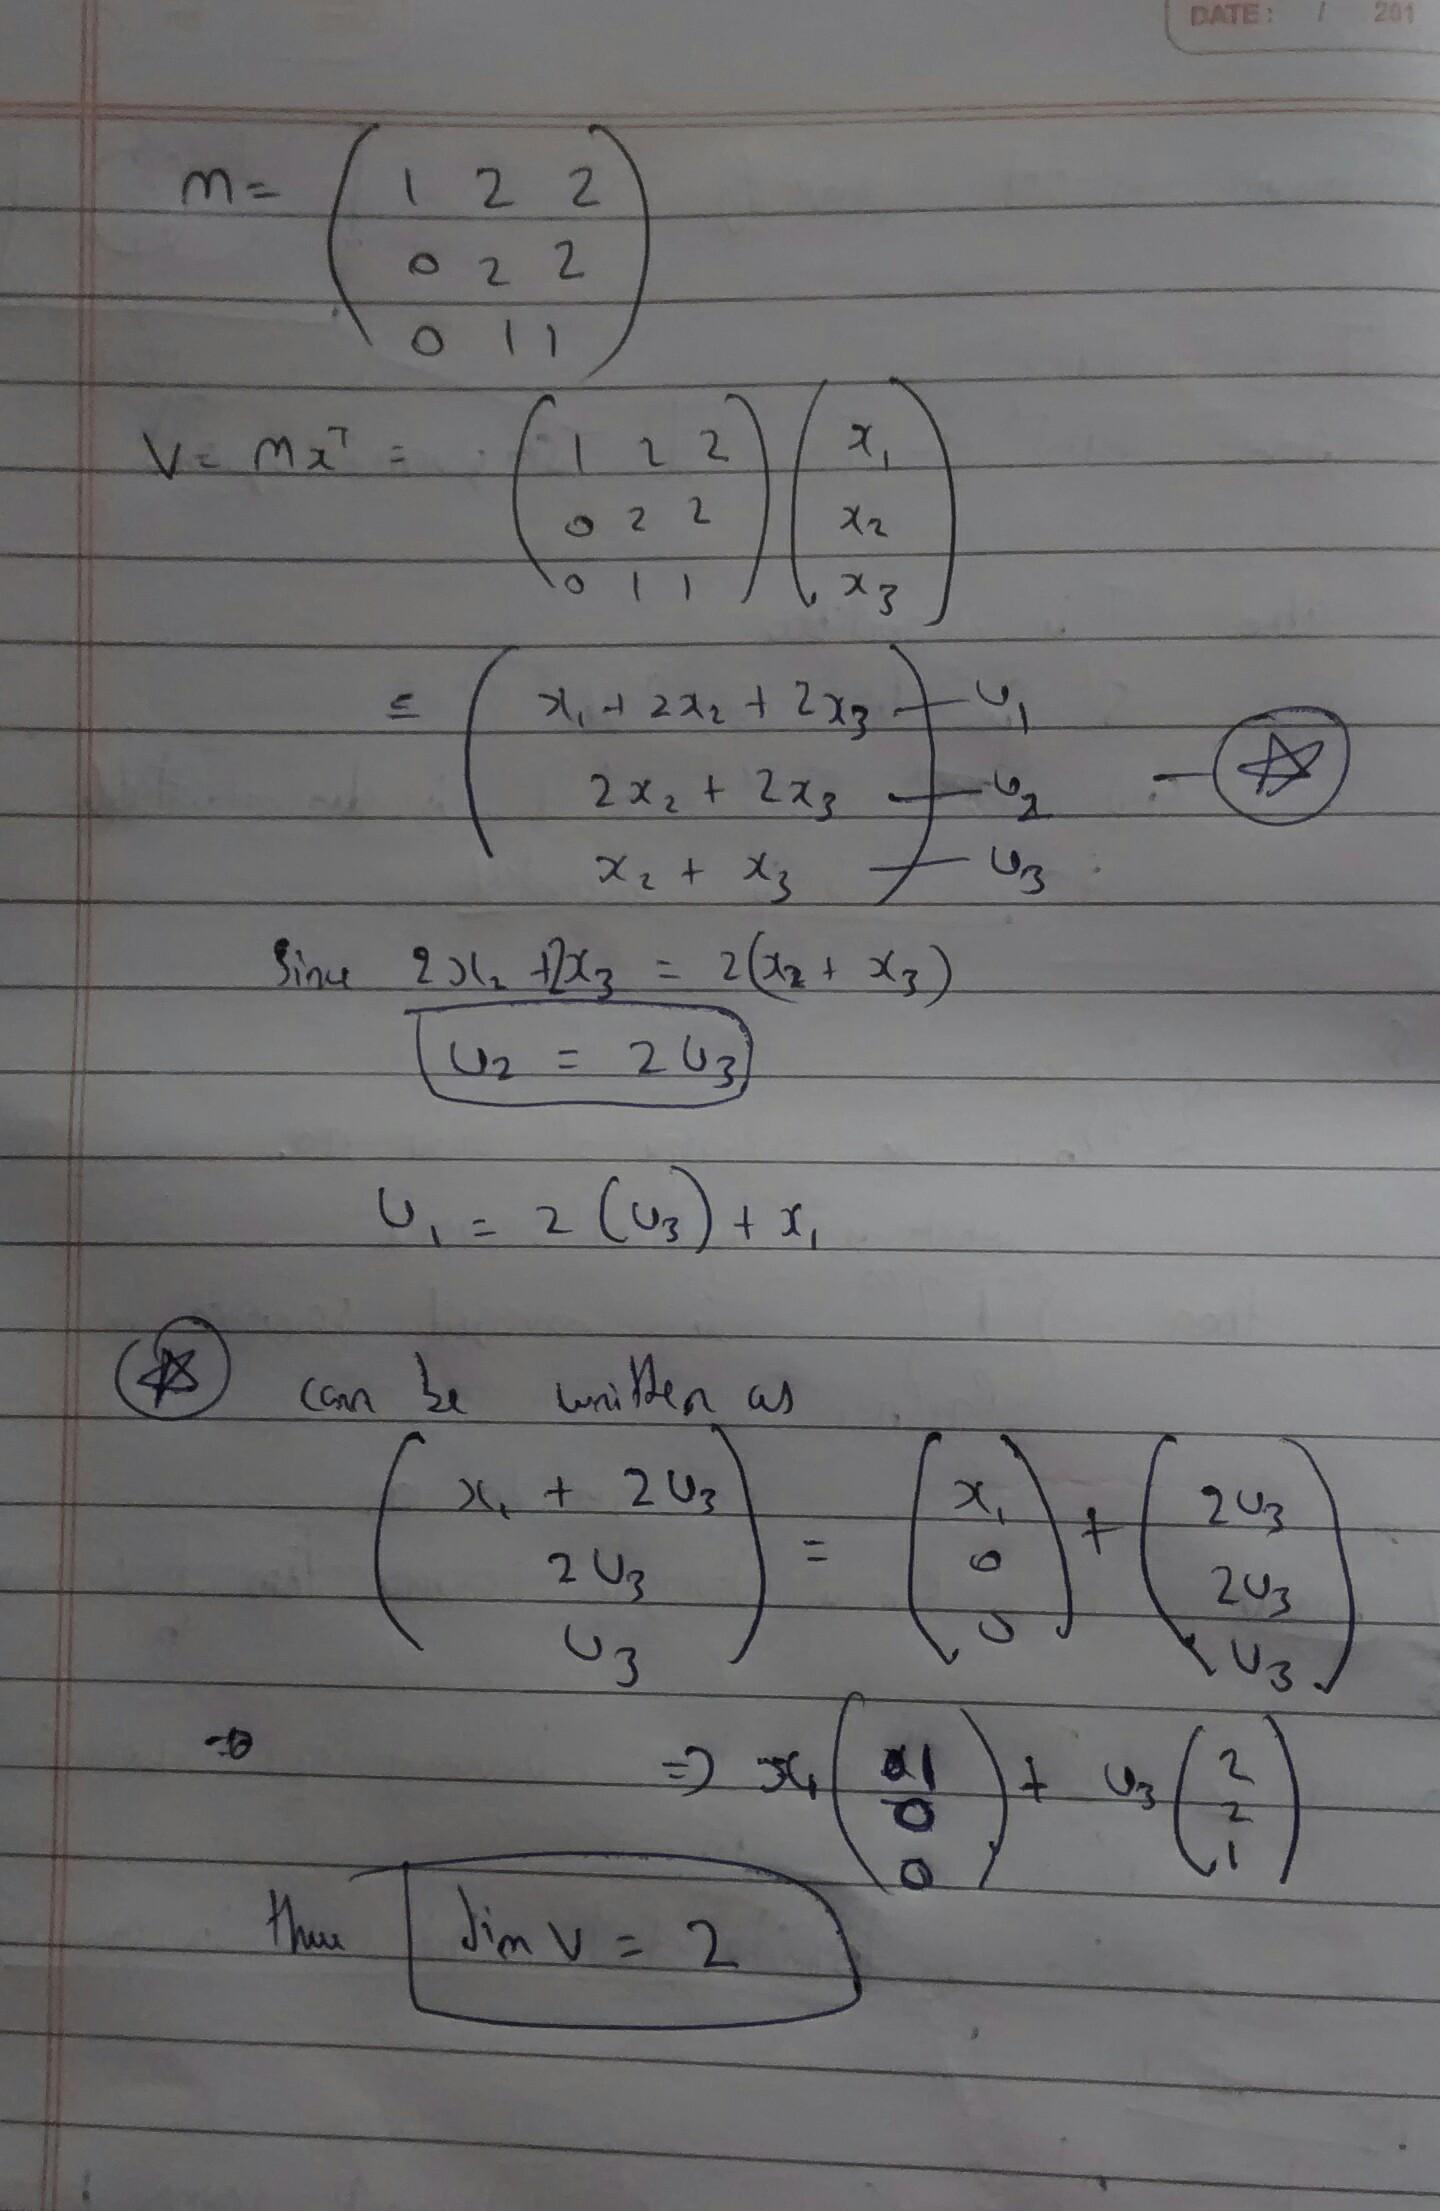 DATE: / 201
m = ( 1 2 2
0 2 2
0 1 1 )
V = mx^T = ( 1 2 2
0 2 2
0 1 1 ) ( x₁
x₂
x₃ )
= ( x₁ + 2x₂ + 2x₃ ) — υ₁
2x₂ + 2x₃ — υ₂ — ☆
x₂ + x₃ — υ₃
Since 2x₂ + 2x₃ = 2(x₂ + x₃)
υ₂ = 2υ₃
υ₁ = 2(υ₃) + x₁
☆ can be written as
( x₁ + 2υ₃
2υ₃
υ₃ ) = ( x₁
0
0 ) + ( 2υ₃
2υ₃
υ₃ )
⇒ x₁ ( 1
0
0 ) + υ₃ ( 2
2
1 )
dim V = 2